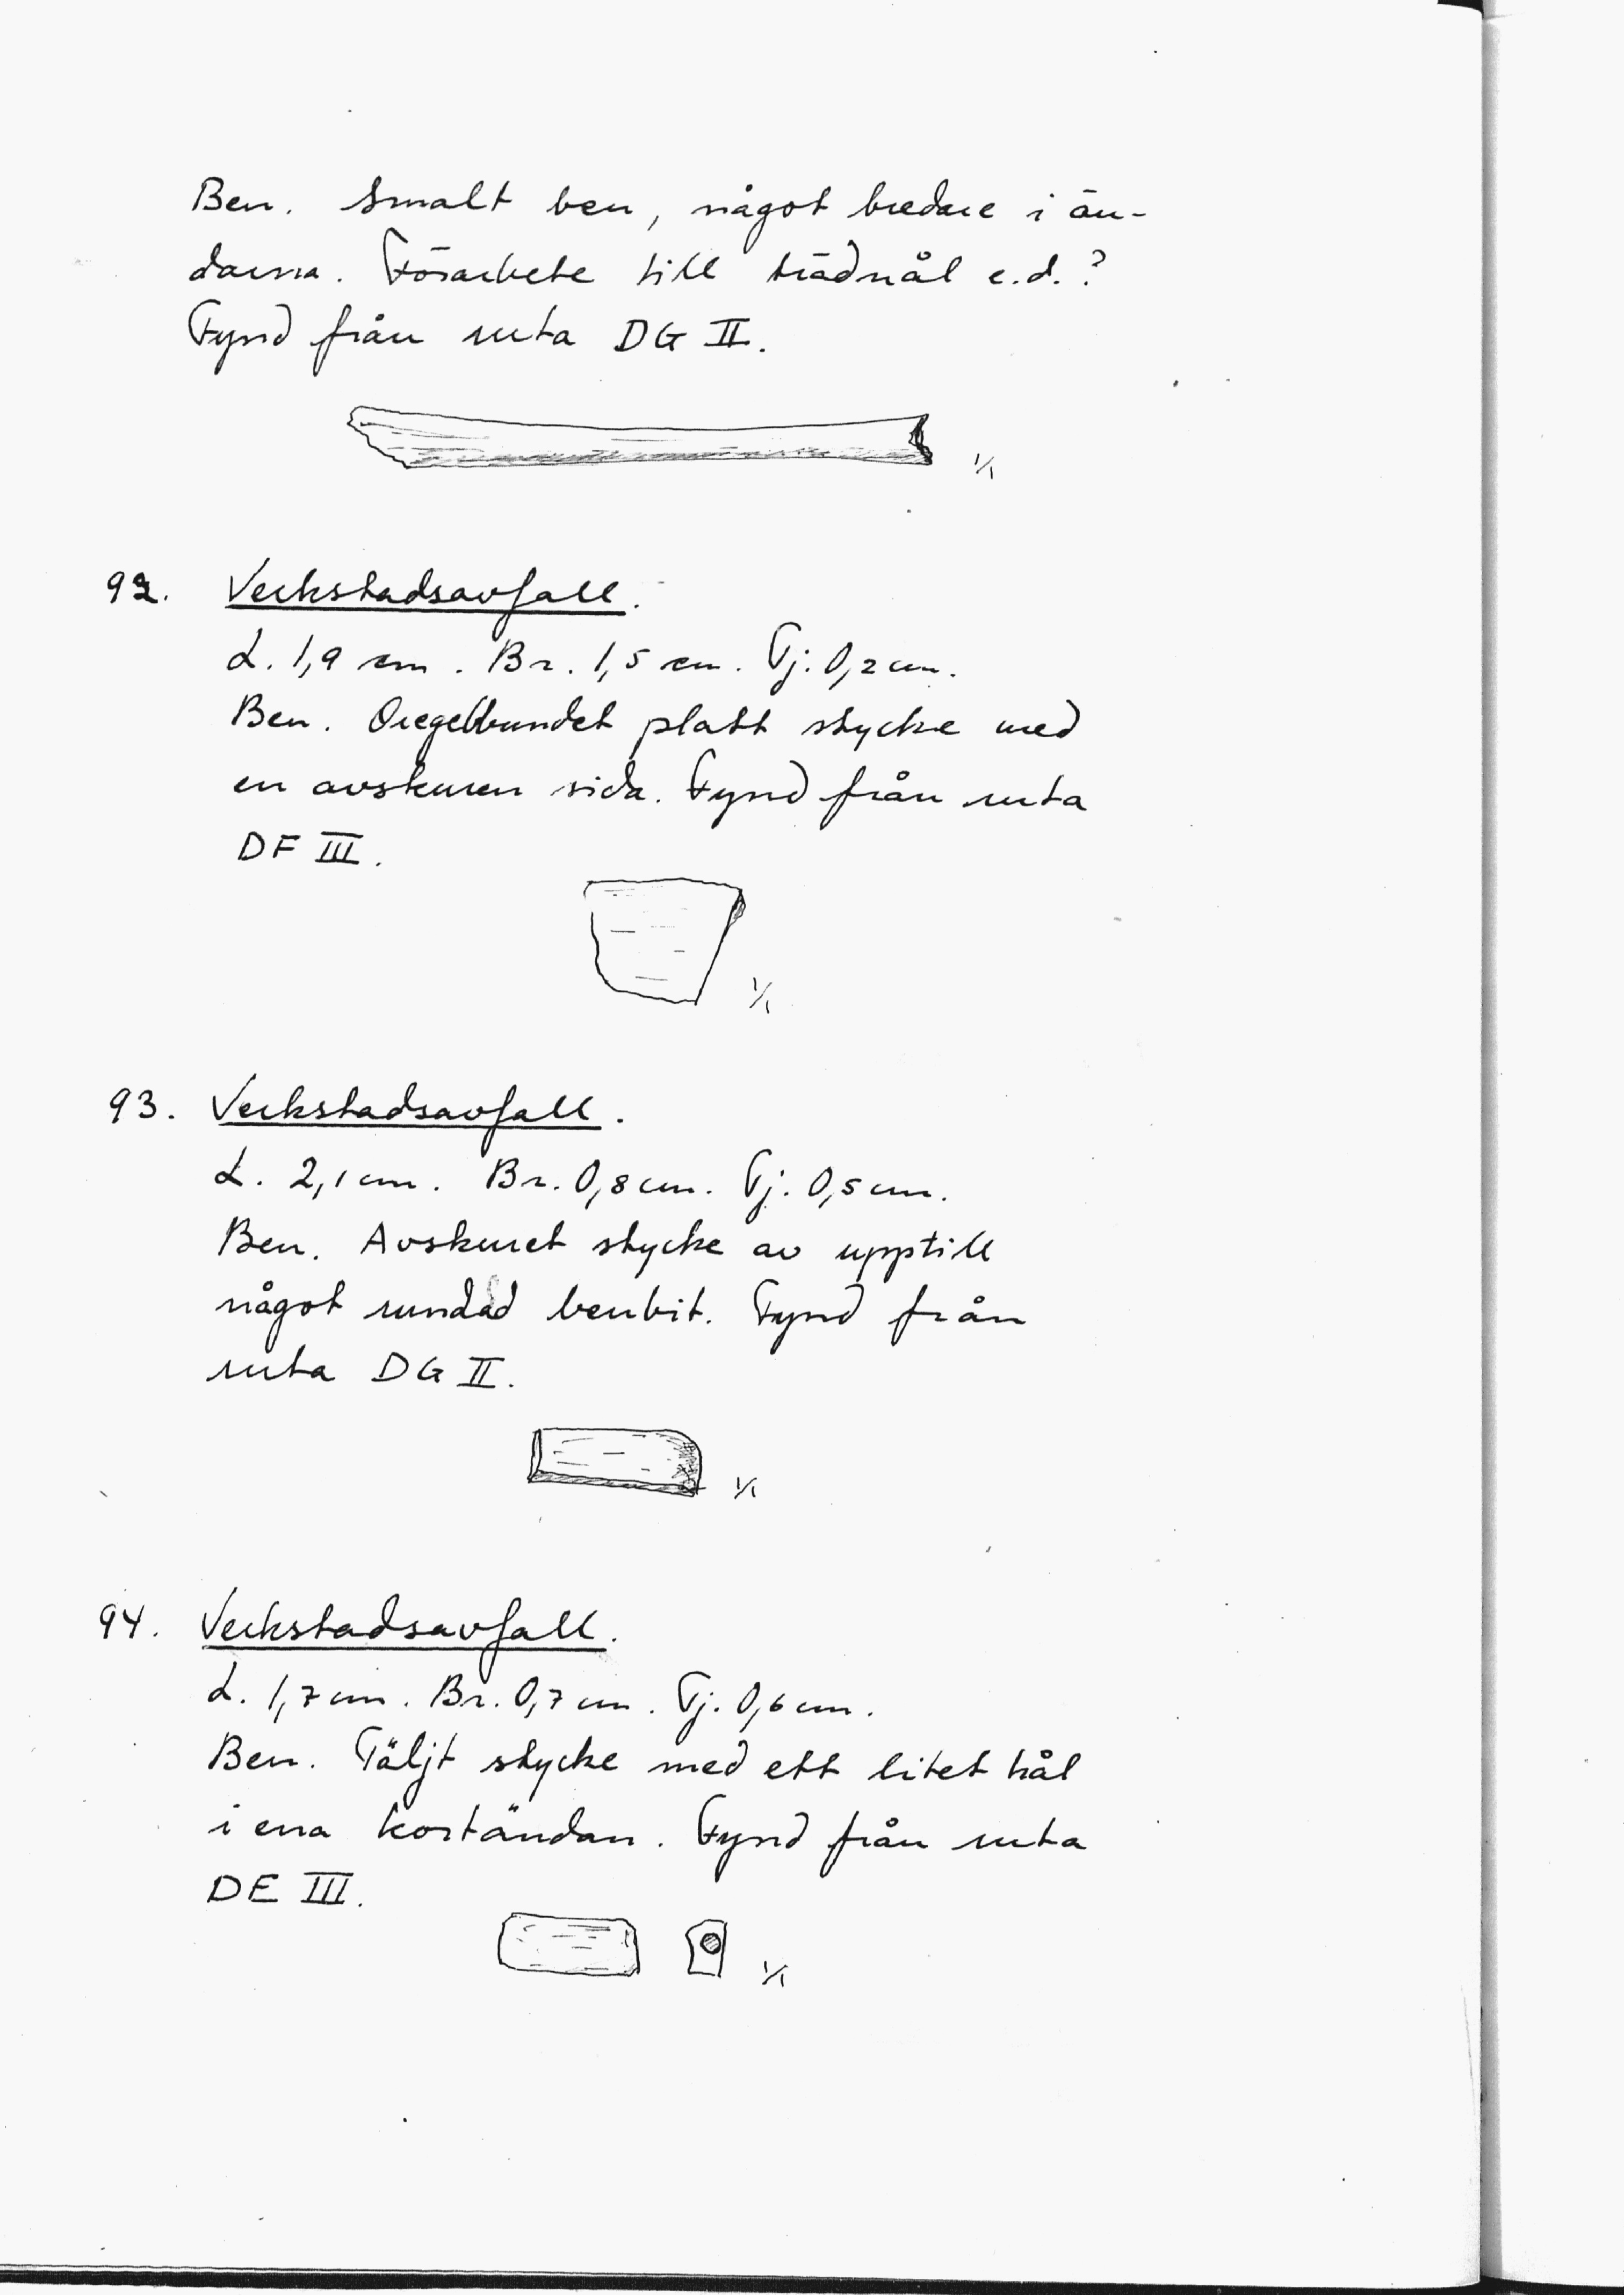 Ben. Smalt ben, något bredare i än-
darna. Förarbete till trädnål e.d.?
Fynd från ruta DG II.
1/1
92. Verkstadsavfall.
L. 1,9 cm. Br. 1,5 cm. Tj. 0,2 cm.
Ben. Oregelbundet platt stycke med
en avskuren sida. Fynd från ruta
DF III.
1/1
93. Verkstadsavfall.
L. 2,1 cm. Br. 0,8 cm. Tj. 0,5 cm.
Ben. Avskuret stycke av upptill
något rundad benbit. Fynd från
ruta DG II.
1/1
94. Verkstadsavfall.
L. 1,7 cm. Br. 0,7 cm. Tj. 0,6 cm.
Ben. Täljt stycke med ett litet hål
i ena kortändan. Fynd från ruta
DE III.
1/1